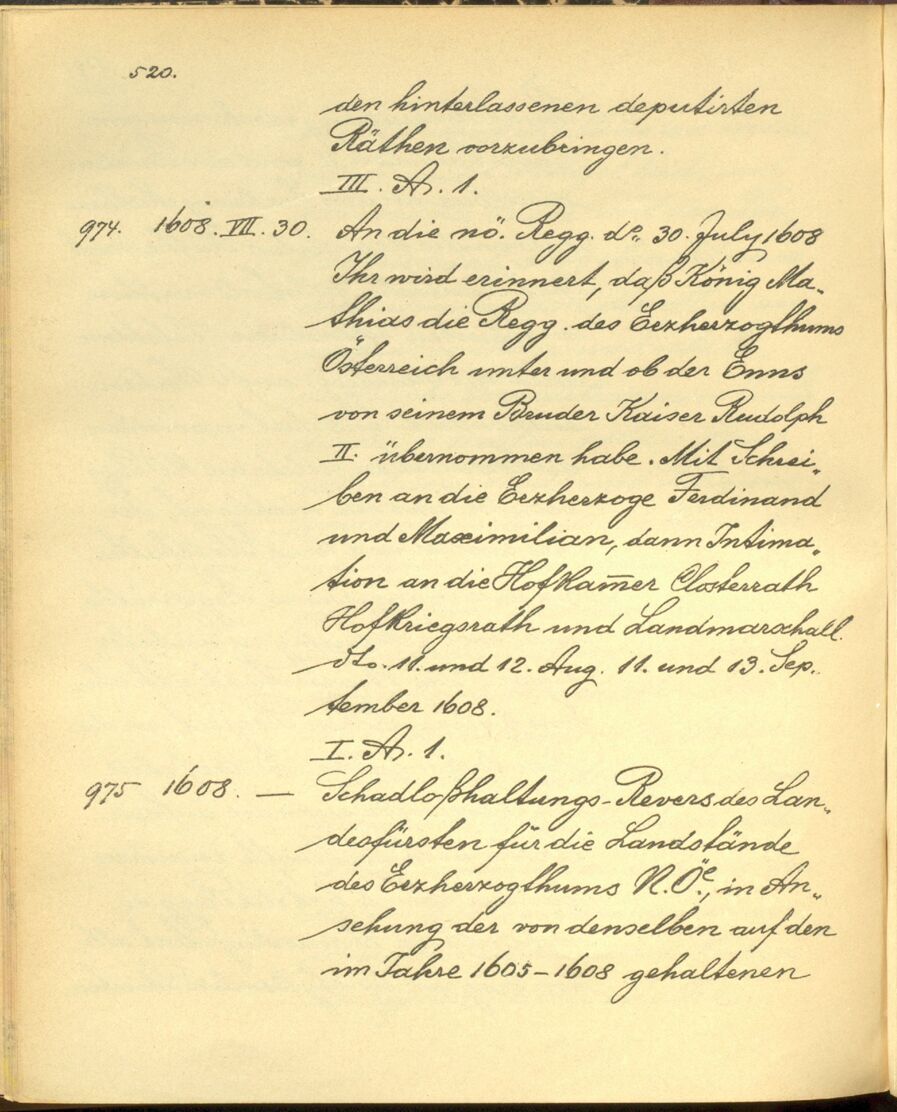 520.
den hinterlassenen deputirten
Räthen vorzubringen.
III. A. 1.
974. 1608. VII. 30. An die nö. Regg. do. 30. July 1608
Ihr wird erinnert, daß König Ma„
thias die Regg. des Erzherzogthums
Österreich unter und ob der Enns
von seinem Bruder Kaiser Rudolph
II. übernommen habe. Mit Schrei„
ben an die Erzherzoge Ferdinand
und Maximilian, dann Intima„
tion an die Hofkam̅er Closterrath
Hofkriegsrath und Landmarschall.
dto. 11. und 12. Aug. 11. und 13. Sep„
tember 1608.
I. A. 1.
975 1608. — Schadloßhaltungs-Revers des Lan„
desfürsten für die Landstände
des Erzherzogthums N.Öe., in An„
sehung der von denselben auf den
im Jahre 1605-1608 gehaltenen